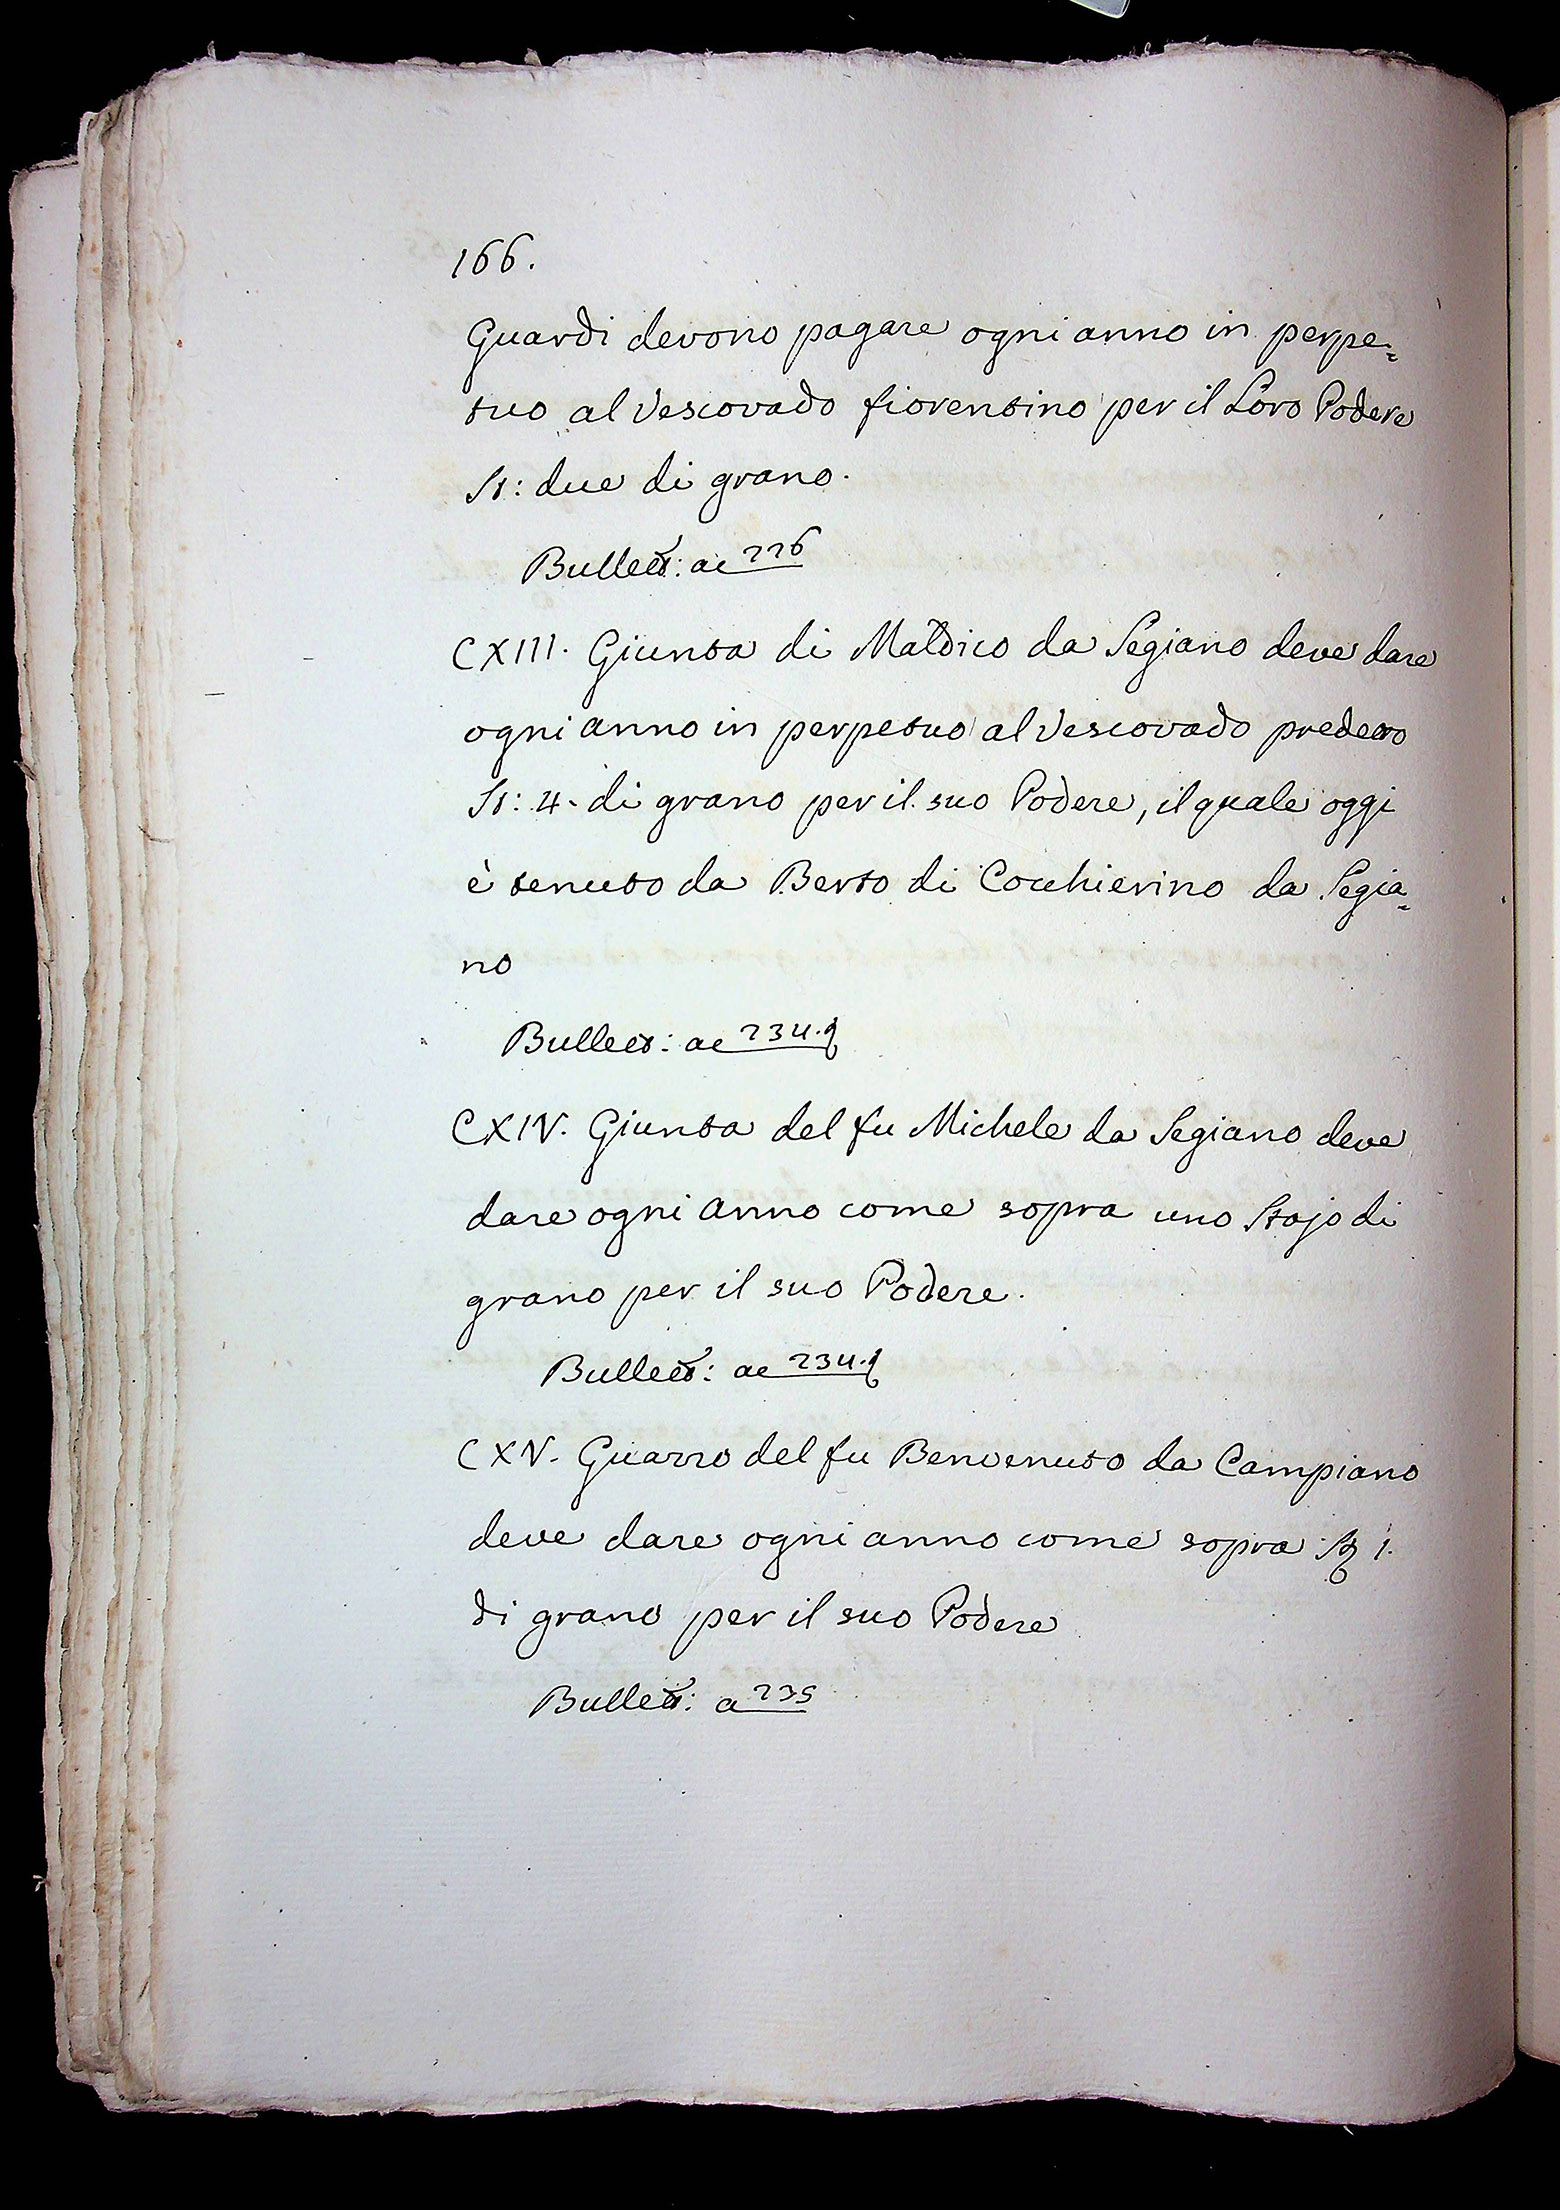 166.
Guardi devono pagare ogni anno in perpe=
tuo al Vescovado fiorentino per il Loro Podere
St: due di grano.
Bullett: ac 226
CXIII. Giunta di Maldico da Segiano deve dare
ogni anno in perpetuo al Vescovado predetto
St: 4. di grano per il suo Podere, il quale oggi
è tenuto da Berto di Cocchierino da Segia=
no
Bullett: ac 234.
CXIV. Giunta del fu Michele da Segiano deve
dare ogni anno come sopra uno Stajo di
grano per il suo Podere.
Bullett: ac 234.
CXV. Guarzo del fu Benvenuto da Campiano
deve dare ogni anno come sopra St 1.
di grano per il suo Podere
Bullett: a 235